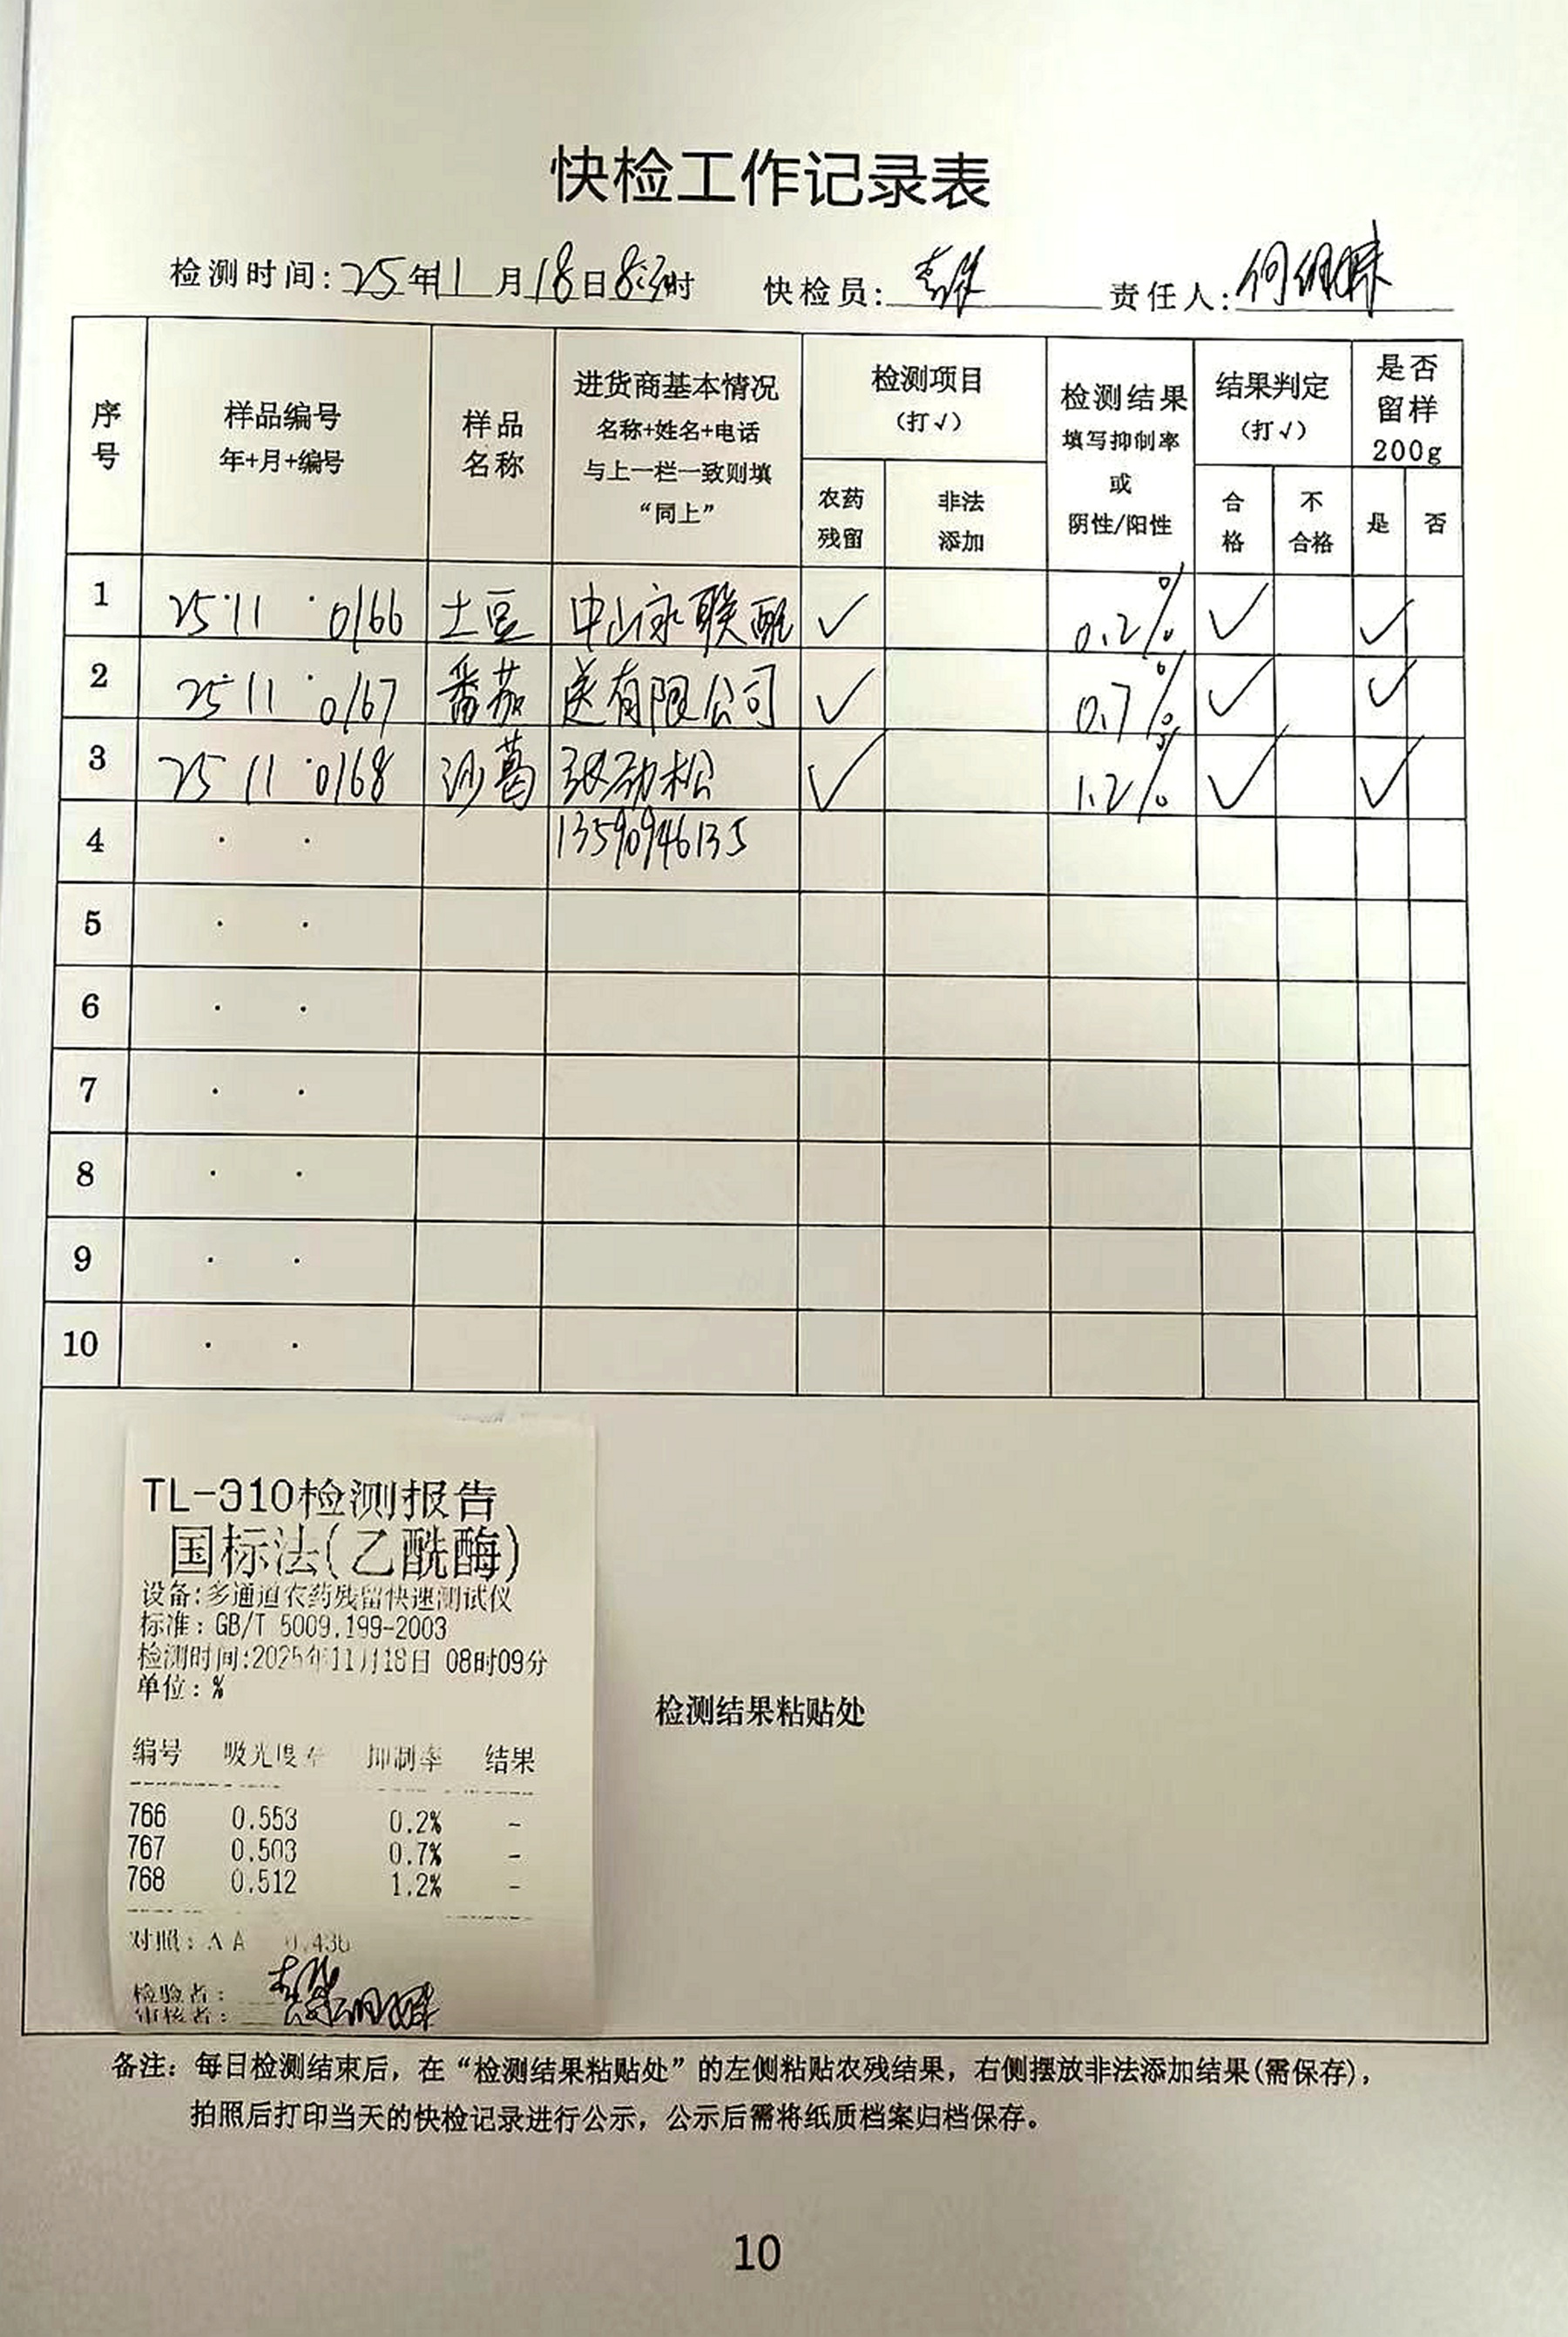 快检工作记录表
检测时间:25年11月18日8:3时 快检员: 责任人:
序号 样品编号 年+月+编号 样品名称 进货商基本情况 名称+姓名+电话 与上一栏一致则填 “同上” 检测项目 (打√) 农药残留 非法添加 检测结果 填写抑制率 或 阴性/阳性 结果判定 (打√) 合格 不合格 是否留样 200g 是 否
1 25·11 ·0166 土豆 中山永联配 ✓ 0.2% ✓ ✓
2 25·11 ·0167 番茄 送有限公司 ✓ 0.7% ✓ ✓
3 25 11 ·0168 沙葛 张劲松 ✓ 1.2% ✓ ✓
4 · · 13590946135
5 · ·
6 · ·
7 · ·
8 · ·
9 · ·
10 · ·
TL-310检测报告
国标法(乙酰酶)
设备:多通道农药残留快速测试仪
标准: GB/T 5009.199-2003
检测时间:2025年11月18日 08时09分
单位: %
编号 吸光度 抑制率 结果
766 0.553 0.2% -
767 0.503 0.7% -
768 0.512 1.2% -
对照: Δ A 0.436
检验者:
审核者:
检测结果粘贴处
备注: 每日检测结束后，在“检测结果粘贴处”的左侧粘贴农残结果，右侧摆放非法添加结果(需保存)，
拍照后打印当天的快检记录进行公示，公示后需将纸质档案归档保存。
10